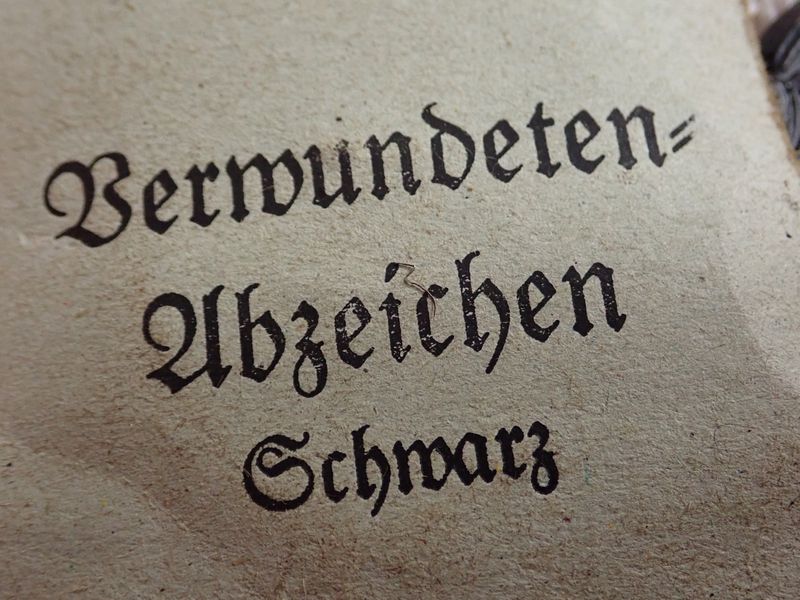 Verwundeten-
Abzeichen
Schwarz